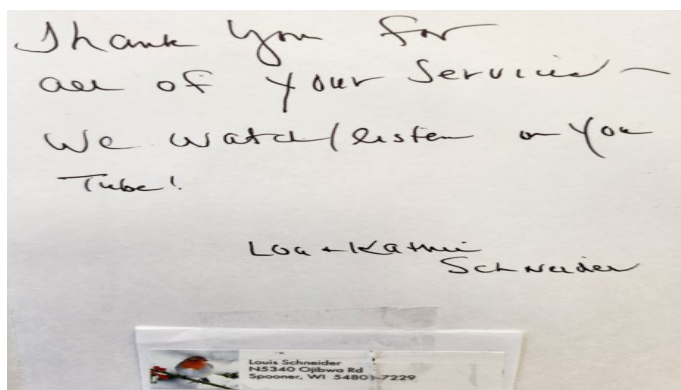 Thank you for
all of your Service –
We watch/listen on You
Tube!
Lou + Kathie
Schneider
Louis Schneider
N5340 Ojibwa Rd
Spooner, WI 54801-7229